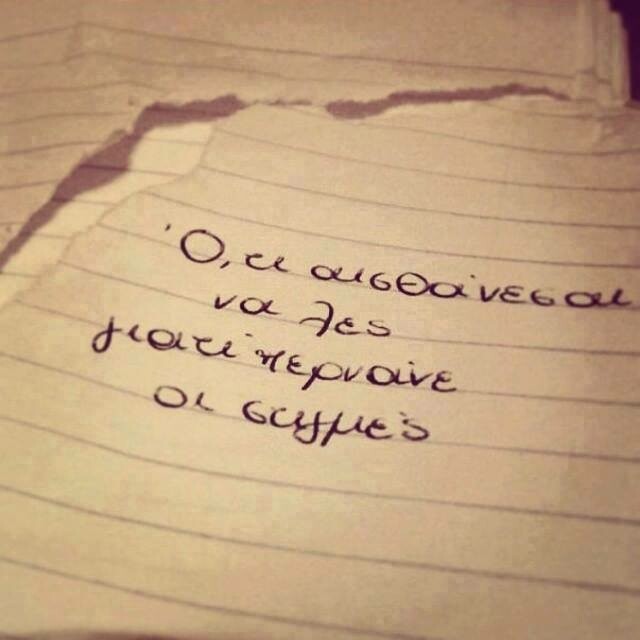 Ό,τι αισθάνεσαι
να λες
γιατί περνάνε
οι στιγμές